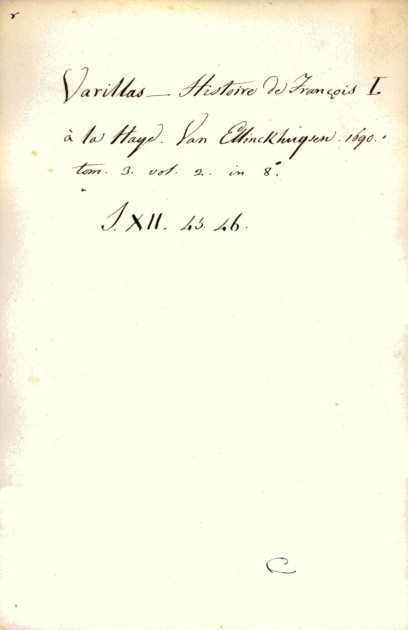 Varillas — Histoire de François I.
à la Haye. Van Ellinckhuysen. 1690.
tom. 3. vol. 2. in 8.°
J. XII. 45. 46.
C